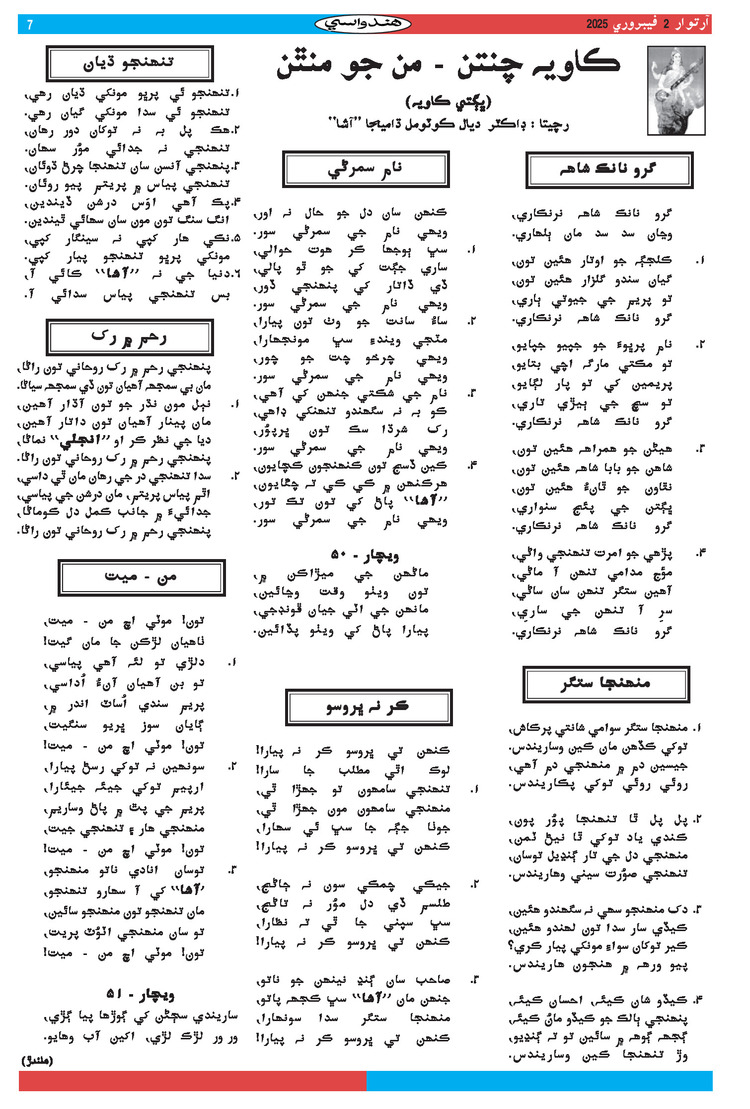 آرتوار 2 فيبروري 2025
هندواسي
7
ڪاويہ چنتن - من جو منٿن
(ڀڳتي ڪاويہ)
رچيتا : ڊاڪٽر ديال ڪوٽومل ڌاميجا ”آشا“
گرو نانڪ شاھہ
گرو نانڪ شاھہ نرنڪاري،
وڃان سد سد مان ٻلھاري.
۱. ڪلجڳہ جو اوتار ھئين تون،
گيان سندو گلزار ھئين تون،
تو پريم جي جيوتي ٻاري،
گرو نانڪ شاھہ نرنڪاري.
۲. نام پرڀوءَ جو جپيو جپايو،
تو مڪتي مارگہ اچي بتايو،
پريمين کي تو پار لڳايو،
تو سچ جي ٻيڙي تاري،
گرو نانڪ شاھہ نرنڪاري.
۳. ھيڻن جو ھمراھہ ھئين تون،
شاھن جو بابا شاھہ ھئين تون،
نقاون جو ڦانءُ ھئين تون،
ڀڳتن جي پئڃ سنواري،
گرو نانڪ شاھہ نرنڪاري.
۴. پڙھي جو امرت تنھنجي واڻي،
مؤج مدامي تنھن آ ماڻي،
آھين ستگر تنھن سان ساڻي،
سر آ تنھن جي ساري،
گرو نانڪ شاھہ نرنڪاري.
منھنجا ستگر
۱. منھنجا ستگر سوامي شانتي پرڪاش،
توکي ڪڏھن مان ڪين وساريندس.
جيسين دم ۾ منھنجي دم آھي،
روئي روئي توکي پڪاريندس.
۲. پل پل ٿا تنھنجا پؤر پون،
ڪندي ياد توکي ٿا نيڻ ٽمن،
منھنجي دل جي تار ڳنڍيل توسان،
تنھنجي صؤرت سيني وھاريندس.
۳. دک منھنجو سھي نہ سگھندو ھئين،
ڪيڏي سار سدا تون لھندو ھئين،
ڪير توکان سواءِ مونکي پيار ڪري؟
پيو ورھہ ۾ ھنجون ھاريندس.
۴. ڪيڏو شان ڪيئہ، احسان ڪيئہ،
پنھنجي ٻالڪ جو ڪيڏو ماڻُ ڪيئہ،
ڳجھہ ڳوھہ ۾ سائين تو تہ ڳنڍيو،
وڙ تنھنجا ڪين وساريندس.
نام سمرڻي
ڪنھن سان دل جو حال نہ اور،
ويھي نام جي سمرڻي سور.
۱. سڀ ٻوجھا ڪر ھوت حوالي،
ساري جڳت کي جو ٿو پالي،
ڏي ڏاتار کي پنھنجي ڏور،
ويھي نام جي سمرڻي سور.
۲. ساءُ سانت جو وٺ تون پيارا،
مٽجي ويندءِ سڀ مونجھارا،
ويھي چرخو چت جو چور،
ويھي نام جي سمرڻي سور.
۳. نام جي شڪتي جنھن کي آھي،
ڪو بہ نہ سگھندو تنھنکي ڊاھي،
رک شرڌا سڪ تون ڀرپؤر،
ويھي نام جي سمرڻي سور.
۴. ڪين ڏسڃ تون ڪنھنجون ڪچايون،
ھرڪنھن ۾ ڪي ڪي تہ چڱايون،
”آشا“ پاڻ کي تون تڪ تور،
ويھي نام جي سمرڻي سور.
ويچار - ۵۰
ماڻھن جي ميڙاڪن ۾،
تون ويٺو وقت وڃائين،
مانھن جي اٿي جيان ڦونڊجي،
پيارا پاڻ کي ويٺو پڏائين.
ڪر نہ ڀروسو
ڪنھن تي ڀروسو ڪر نہ پيارا!
لوڪ اٿي مطلب جا سارا!
۱. تنھنجي سامھون تو جھڙا ٿي،
منھنجي سامھون مون جھڙا ٿي،
جوٺا جڳہ جا سڀ ئي سھارا،
ڪنھن تي ڀروسو ڪر نہ پيارا!
۲. جيڪي چمڪي سون نہ ڄاڻڃ،
طلسم ڏي دل موُر نہ تاڻڃ،
سڀ سپني جا ٿي تہ نظارا،
ڪنھن تي ڀروسو ڪر نہ پيارا!
۳. صاحب سان ڳنڍ نينھن جو ناتو،
جنھن مان ”آشا“ سڀ ڪجھہ پاتو،
منھنجا ستگر سدا سونھارا،
ڪنھن تي ڀروسو ڪر نہ پيارا!
تنھنجو ڌيان
۱. تنھنجو ئي پرڀو مونکي ڌيان رھي،
تنھنجو ئي سدا مونکي گيان رھي.
۲. ھڪ پل بہ نہ توکان دور رھان،
تنھنجي نہ جدائي موُر سھان.
۳. پنھنجي آنسن سان تنھنجا چرڻ ڌوئان،
تنھنجي پياس ۾ پريتم پيو روئان.
۴. پڪ آھي اوَس درشن ڏيندين،
انگ سنگ تون مون سان سھائي ٿيندين.
۵. نڪي ھار کپي نہ سينگار کپي،
مونکي پرڀو تنھنجو پيار کپي.
۶. دنيا جي نہ ”آشا“ ڪائي آ،
بس تنھنجي پياس سدائي آ.
رحم ۾ رک
پنھنجي رحم ۾ رک روحاني تون راڻا،
مان بي سمجھہ آھيان تون ڏي سمجھہ سياڻا.
۱. نٻل مون نڌر جو تون آڌار آھين،
مان پينار آھيان تون داتار آھين،
ديا جي نظر ڪر او ”انجلي“ نماڻا،
پنھنجي رحم ۾ رک روحاني تون راڻا.
۲. سدا تنھنجي در جي رھان مان ٿي داسي،
اٿم پياس پريتم، مان درشن جي پياسي،
جدائيءَ ۾ جانب ڪمل دل ڪوماڻا،
پنھنجي رحم ۾ رک روحاني تون راڻا.
من - ميت
تون! موٽي اچ من - ميت!
ٺاھيان لڙڪن جا مان گيت!
۱. دلڙي تو لئہ آھي پياسي،
تو بن آھيان آنءُ اُداسي،
پريم سندي اُساٽ اندر ۾،
ڳايان سوز ڀريو سنگيت،
تون! موٽي اچ من - ميت!
۲. سونھين نہ توکي رسڻ پيارا،
ارپيم توکي جيئہ جيئارا،
پريم جي پٿ ۾ پاڻ وساريم،
منھنجي ھار ۽ تنھنجي جيت،
تون! موٽي اچ من - ميت!
۳. توسان انادي ناتو منھنجو،
”آشا“ کي آ سھارو تنھنجو،
مان تنھنجو تون منھنجو سائين،
تو سان منھنجي اٽوُٽ پريت،
تون! موٽي اچ من - ميت!
ويچار - ۵۱
ساريندي سڄڻن کي ڳوڙھا پيا ڳڙي،
ور ور لڙڪ لڙي، اکين آب وھايو.
(ھلندڙ)